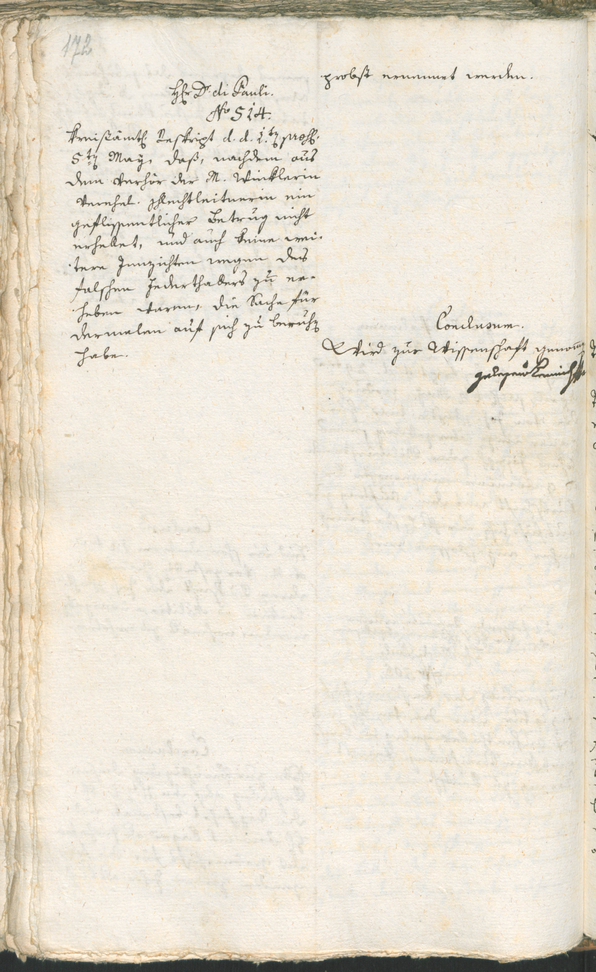 172
H: Dr di Pauli.
No 514.
Kreisämtl. Reskript d. d. 1ten pras.
5ten May, daß, nachdem aus
dem Verhör der M. Wincklerin
verehel. Hechtleitnerin ein
geflissentlicher Betrug nicht
erhellet, und auch keine wei-
tere Innzichten wegen des
falschen Federthalers zu er-
heben waren, die Sache für
dermalen auf sich zu beruhen
habe.
probst ernannet werden.
Conclusum.
Wird zur Wissenschaft genomen